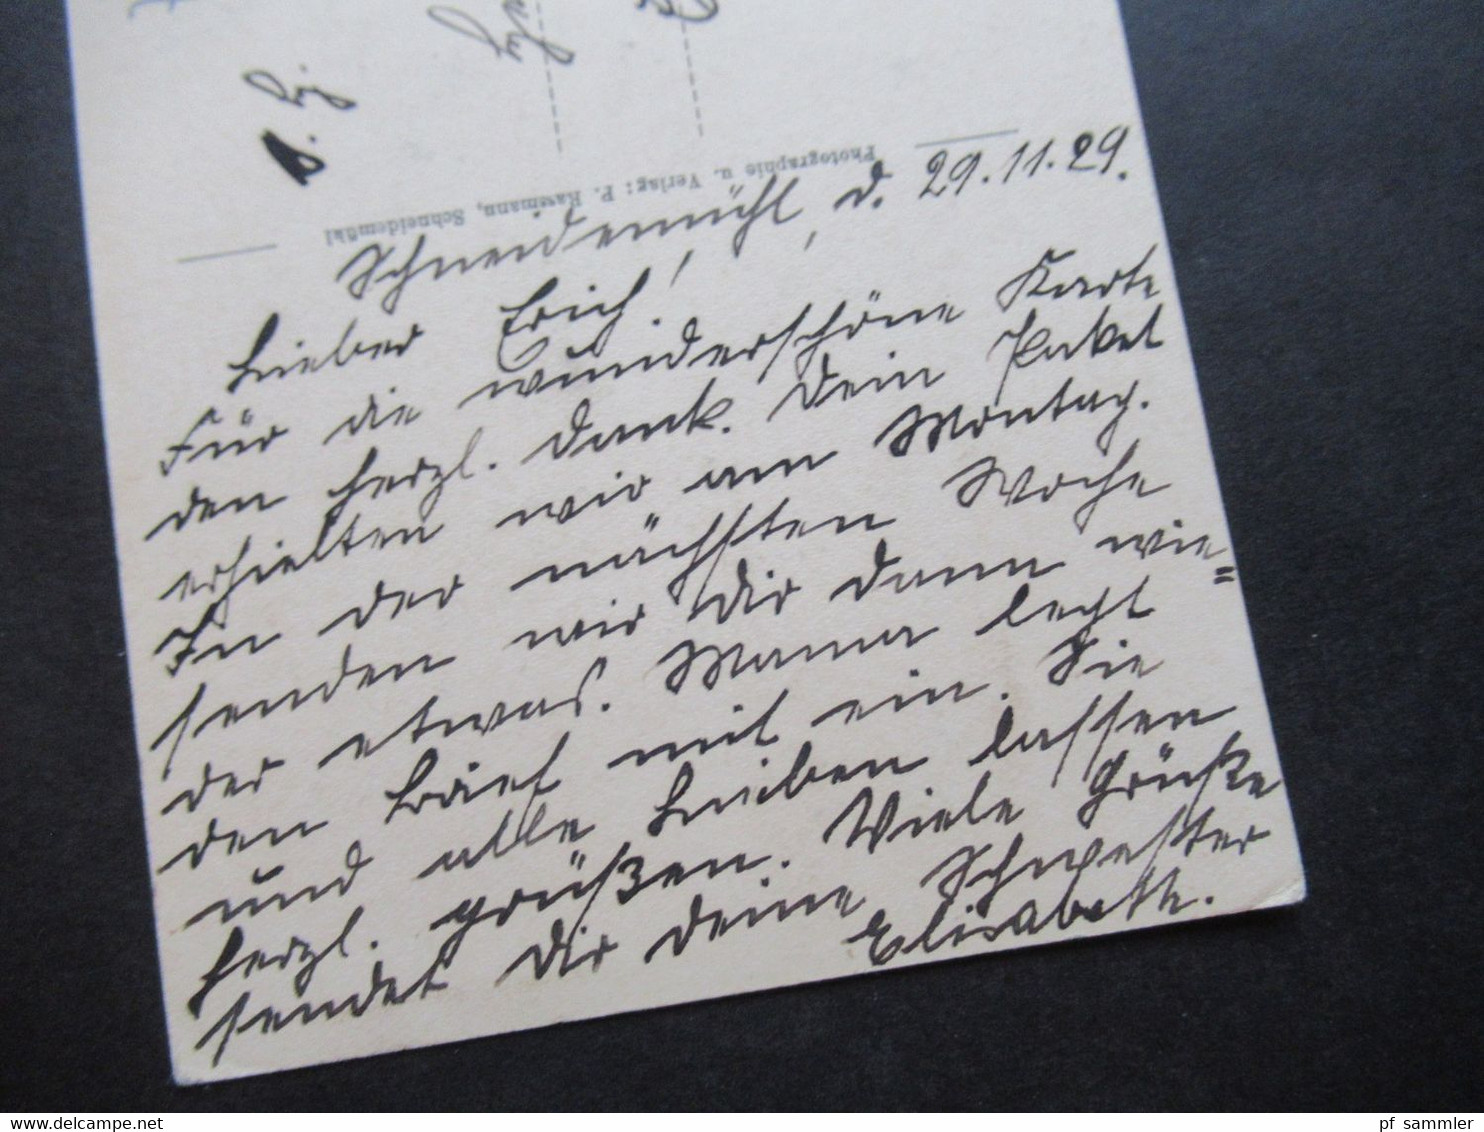 Photographie u. Verlag: P. Rassmann, Schneidemühl
Schneidemühl, d. 29.11.29.
Lieber Erich!
Für die wunderschöne Karte
den herzl. Dank. Dein Paket
erhielten wir am Montag.
In der nächsten Woche
senden wir Dir dann wie=
der etwas. Mama legt
den Brief mit ein. Sie
und alle Lieben lassen
herzl. grüßen. Viele Grüße
sendet Dir deine Schwester
Elisabeth.
pf_sammler - Delcampe.net